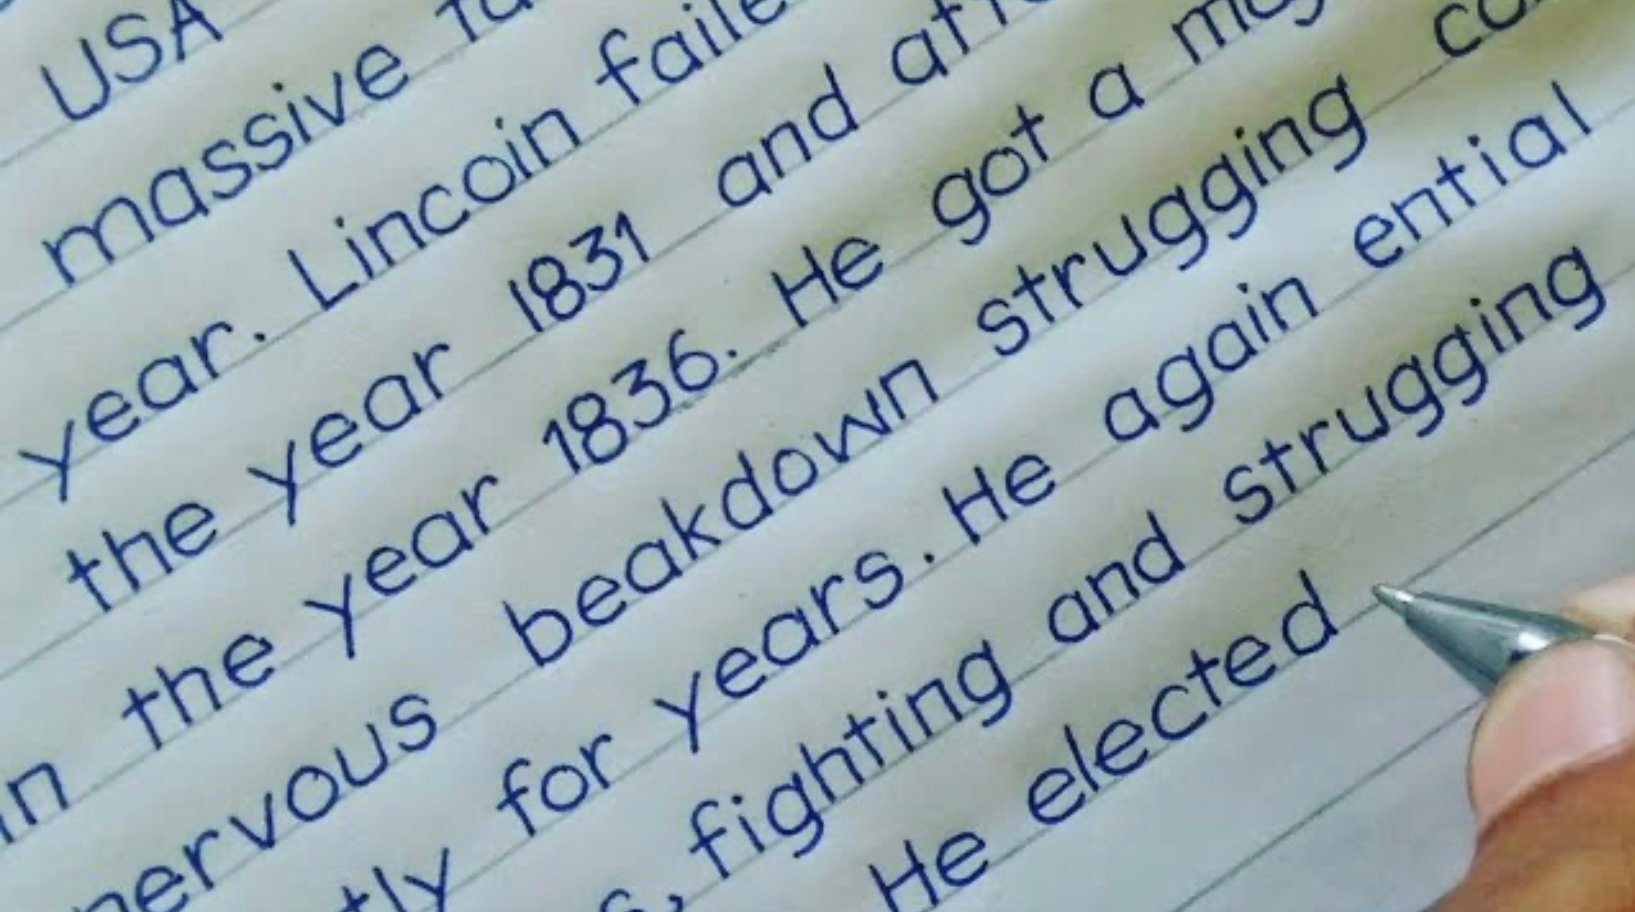 USA
massive
year. Lincoin faile
the year 1831 and
in the year 1836. He got a
nervous beakdown strugging
tly for years. He again ential
fighting and strugging
He elected